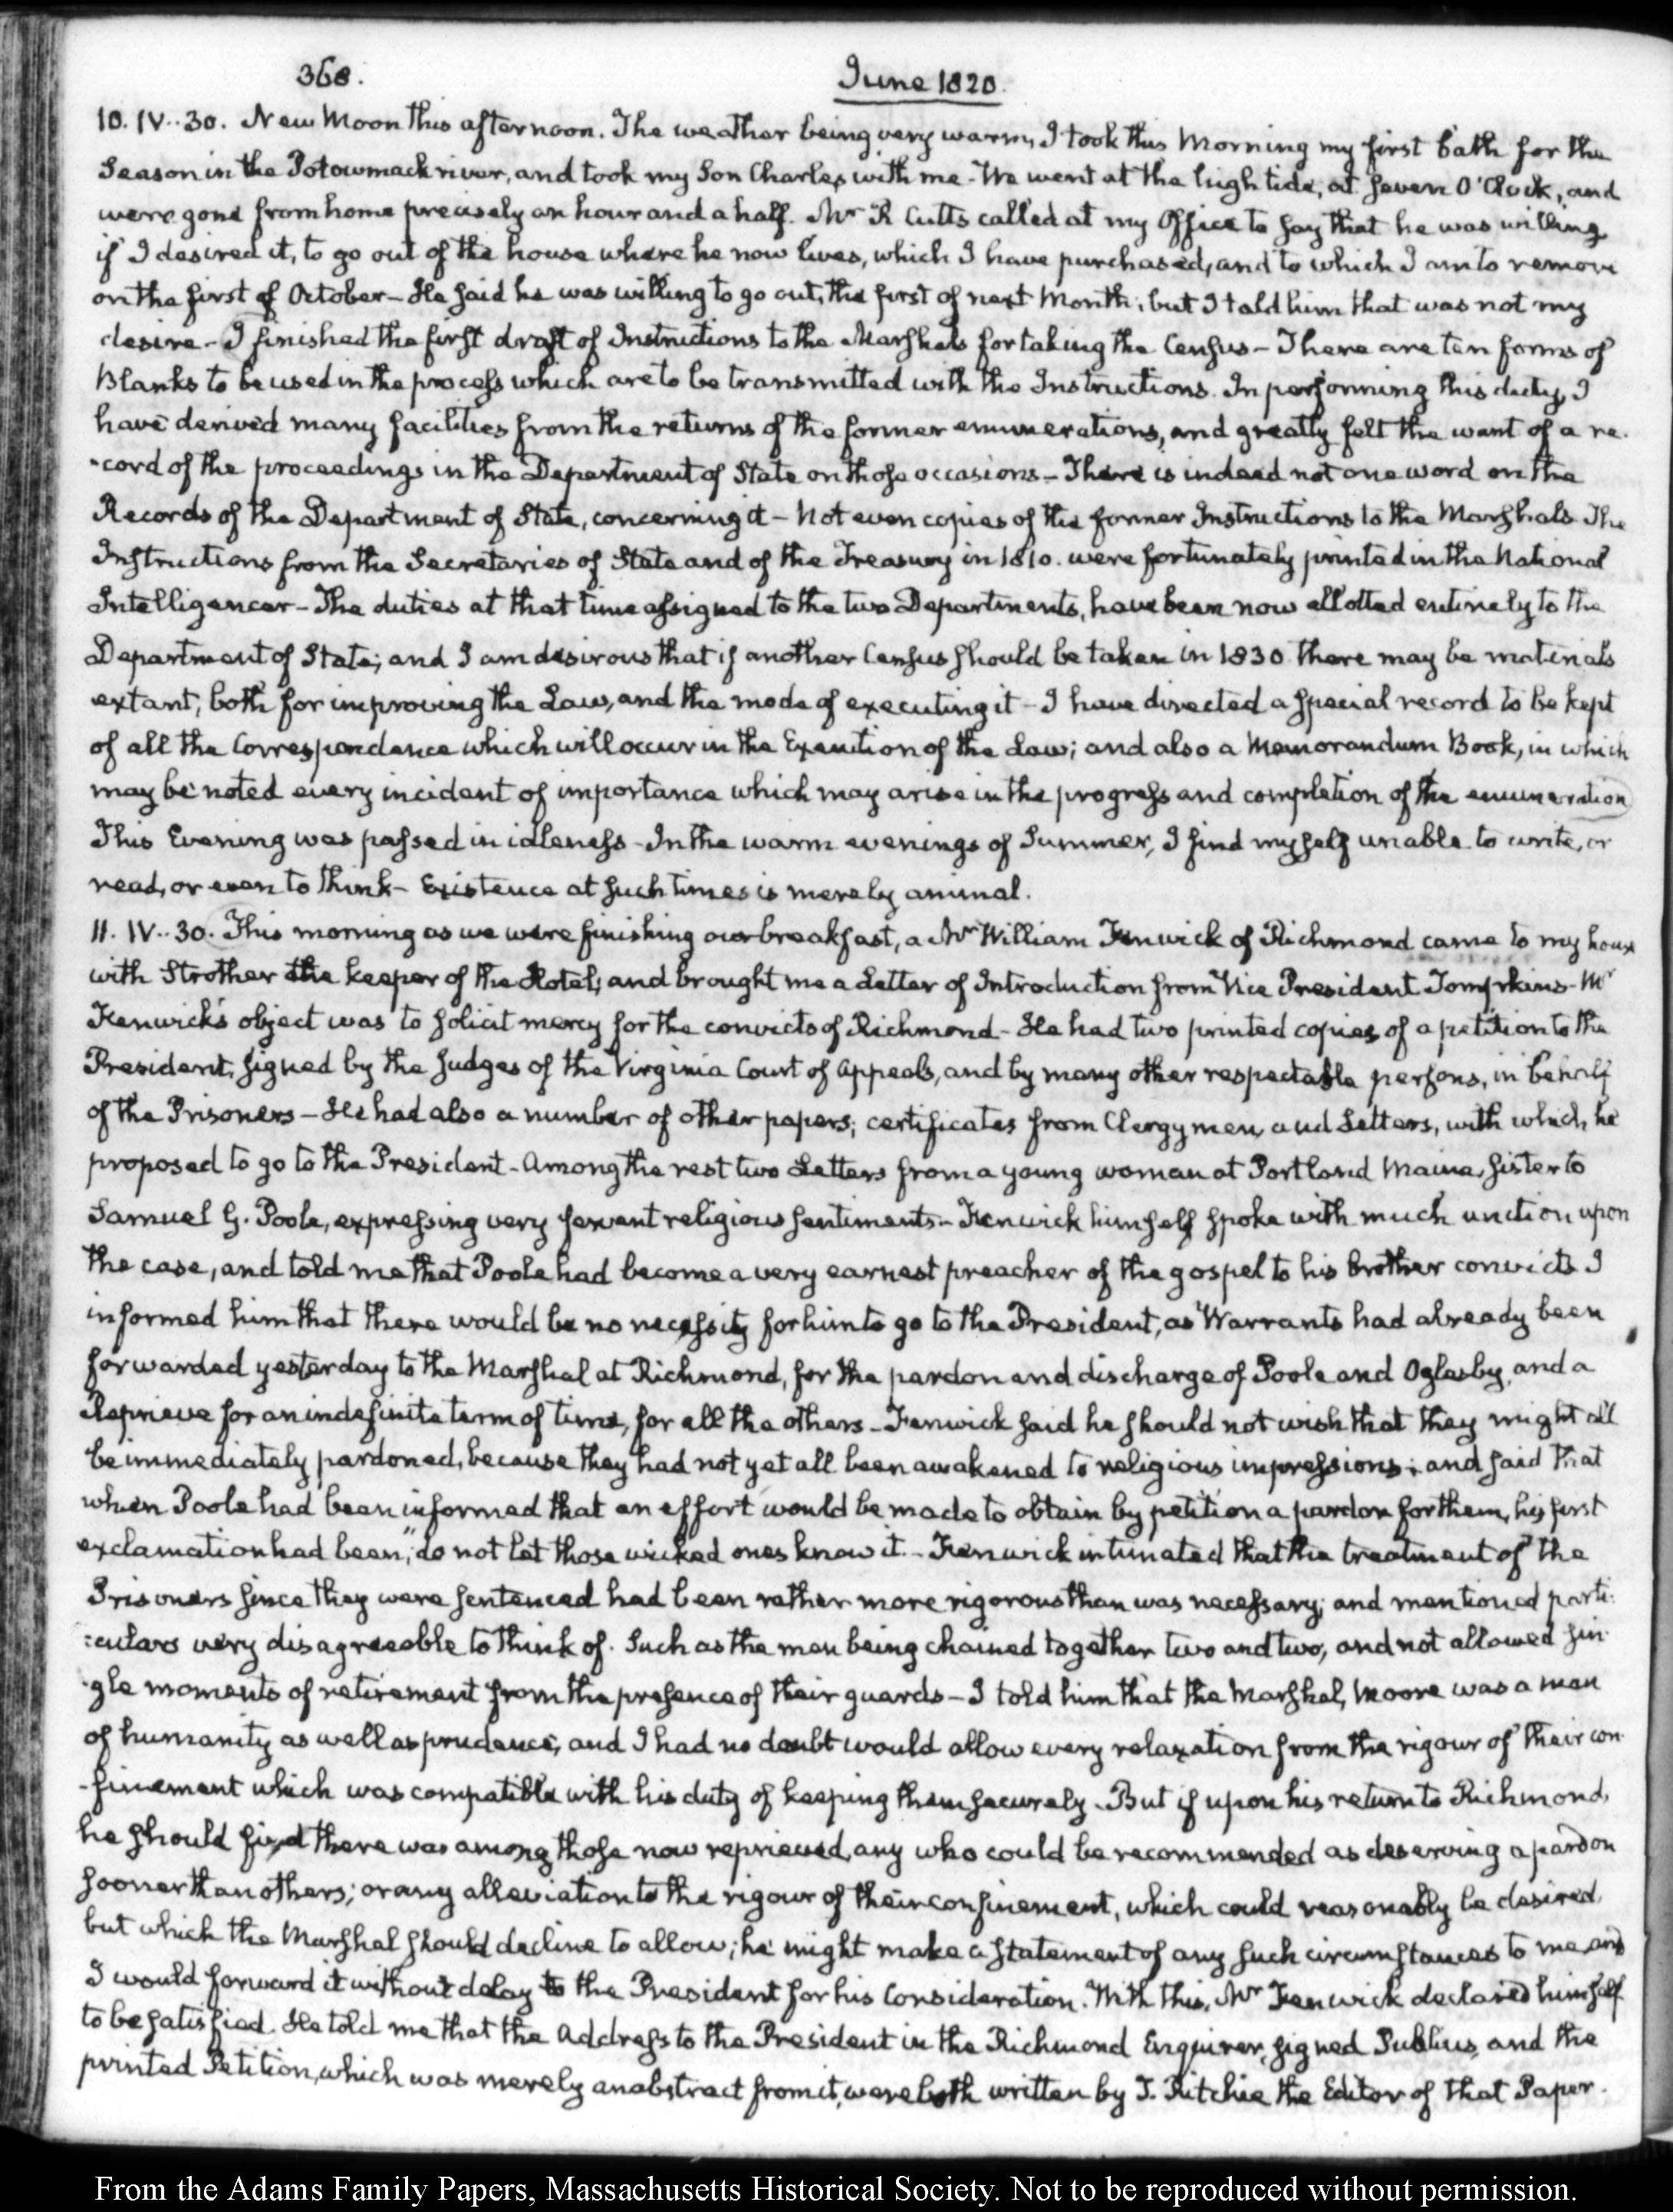 368.
June 1820.
10. IV..30. New Moon this afternoon. The weather being very warm, I took this Morning my first bath for the
Season in the Potowmack river, and took my Son Charles with me. We went at the high tide, at seven O'Clock, and
were gone from home precisely an hour and a half. Mr R Cutts called at my Office to say that he was willing
if I desired it, to go out of the house where he now lives, which I have purchased, and to which I am to remove
on the first of October – He said he was willing to go out, the first of next Month; but I told him that was not my
desire – I finished the first draft of Instructions to the Marshals for taking the Census – There are ten forms of
Blanks to be used in the process which are to be transmitted with the Instructions. In performing this duty, I
have derived many facilities from the returns of the former enumerations, and greatly felt the want of a re-
-cord of the proceedings in the Department of State on those occasions – There is indeed not one word on the
Records of the Department of State, concerning it – Not even copies of the former Instructions to the Marshals. The
Instructions from the Secretaries of State and of the Treasury in 1810. were fortunately printed in the National
Intelligencer – The duties at that time assigned to the two Departments, have been now allotted entirely to the
Department of State; and I am desirous that if another Census should be taken in 1830 there may be materials
extant, both for improving the Law, and the mode of executing it – I have directed a special record to be kept
of all the Correspondence which will occur in the Execution of the Law; and also a Memorandum Book, in which
may be noted every incident of importance which may arise in the progress and completion of the enumeration
This Evening was passed in idleness – In the warm evenings of Summer, I find myself unable to write, or
read, or even to think – Existence at such times is merely animal.
11. IV..30. This morning as we were finishing our breakfast, a Mr William Fenwick of Richmond came to my house
with Strother the keeper of the Hotel; and brought me a Letter of Introduction from Vice President Tompkins – Mr
Fenwick's object was to solicit mercy for the convicts of Richmond – He had two printed copies of a petition to the
President, signed by the Judges of the Virginia Court of Appeals, and by many other respectable persons, in behalf
of the Prisoners – He had also a number of other papers; certificates from Clergymen, and Letters, with which he
proposed to go to the President – Among the rest two Letters from a young woman at Portland Maine, sister to
Samuel G. Poole, expressing very fervent religious sentiments – Fenwick himself spoke with much unction upon
the case, and told me that Poole had become a very earnest preacher of the gospel to his brother convicts I
informed him that there would be no necessity for him to go to the President, as Warrants had already been
forwarded yesterday to the Marshal at Richmond, for the pardon and discharge of Poole and Oglesby, and a
Reprieve for an indefinite term of time, for all the others – Fenwick said he should not wish that they might all
be immediately pardoned, because they had not yet all been awakened to religious impressions; and said that
when Poole had been informed that an effort would be made to obtain by petition a pardon for them, his first
exclamation had been, "do not let those wicked ones know it. – Fenwick intimated that the treatment of the
Prisoners since they were sentenced had been rather more rigorous than was necessary; and mentioned parti-
:culars very disagreeable to think of. Such as the men being chained together two and two, and not allowed sin-
-gle moments of retirement from the presence of their guards – I told him that the Marshal, Moore was a man
of humanity as well as prudence, and I had no doubt would allow every relaxation from the rigour of their con-
-finement which was compatible with his duty of keeping them securely. But if upon his return to Richmond,
he should find there was among those now reprieved, any who could be recommended as deserving a pardon
sooner than others; or any alleviation to the rigour of their confinement, which could reasonably be desired,
but which the Marshal should decline to allow; he might make a statement of any such circumstances to me and
I would forward it without delay to the President for his Consideration. With this, Mr Fenwick declared himself
to be satisfied. He told me that the Address to the President in the Richmond Enquirer, signed Publius, and the
printed Petition, which was merely an abstract from it, were both written by T. Ritchie the Editor of that Paper.
From the Adams Family Papers, Massachusetts Historical Society. Not to be reproduced without permission.